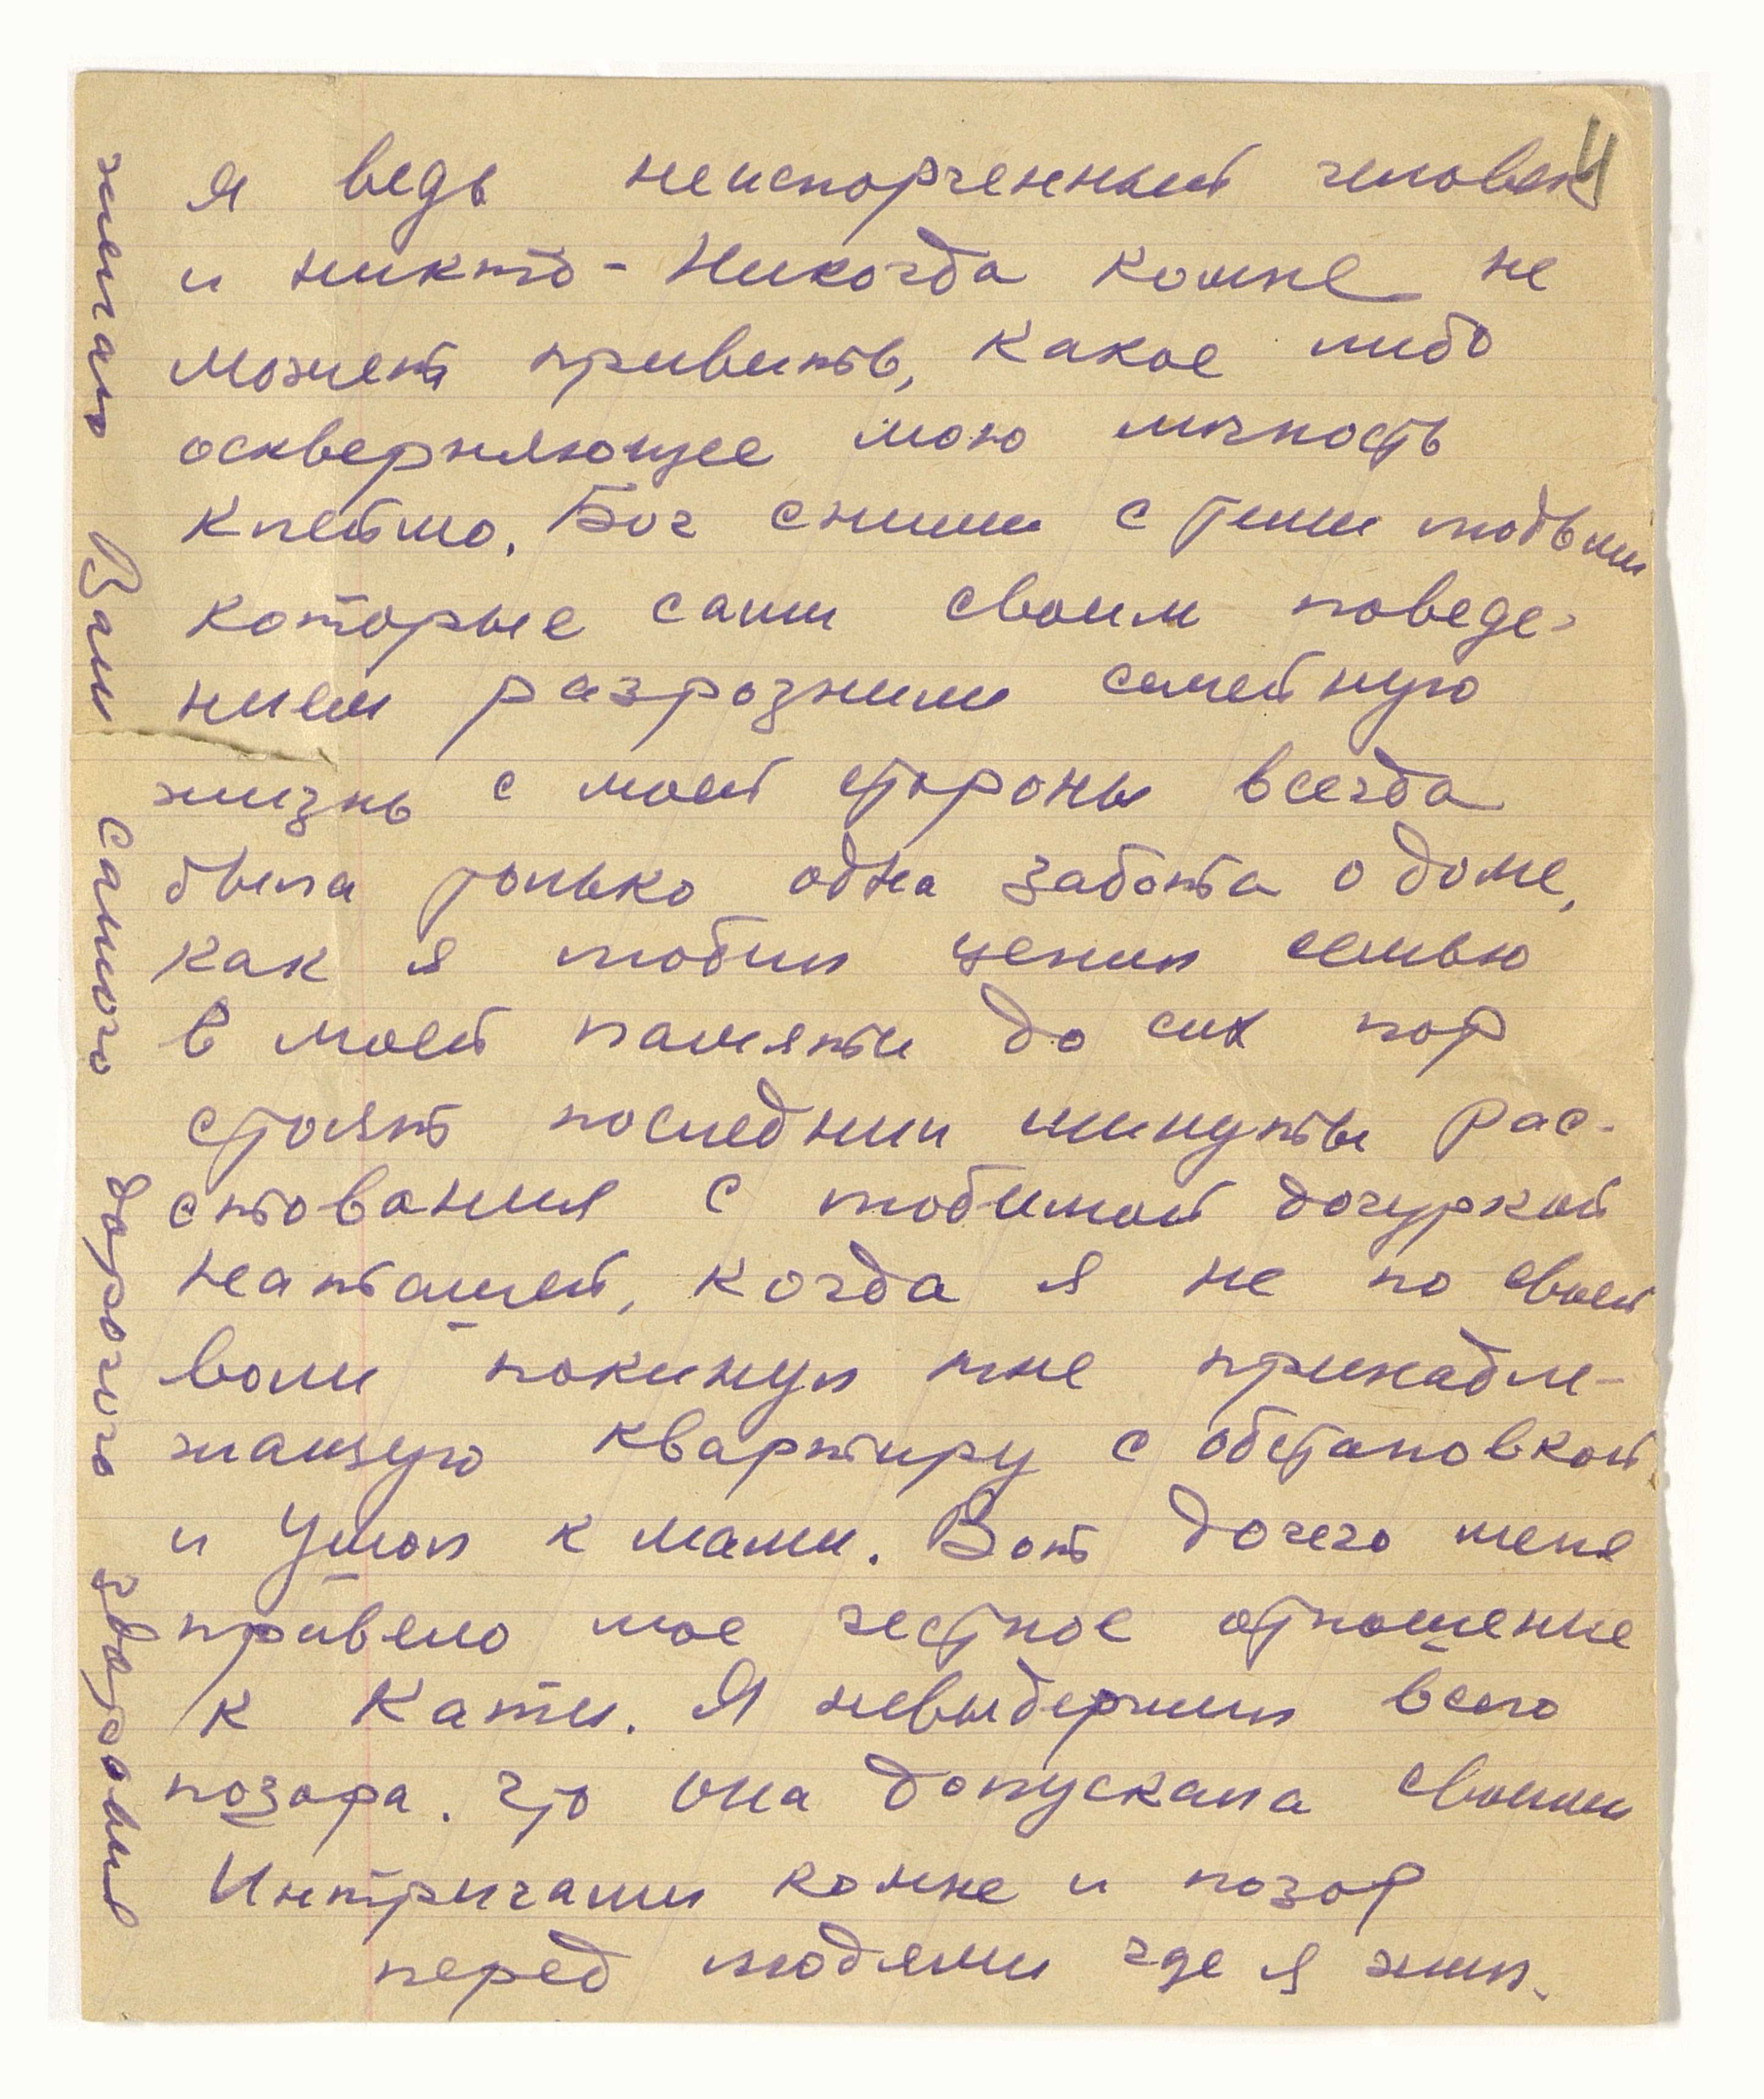 4
я ведь неиспорченный человек
и никто - Никогда комне не
может привить, какое либо
оскверняющее мою личность
клеймо. Бог сними с теми людьми
которые сами своим поведе-
нием разрознили семейную
жизнь с моей стороны всегда
была только одна забота о доме,
как я любил ценил семью
в моей памяти до сих пор
стоят последнии минуты рас-
стования с любимой дочуркой
Наташей, когда я не по своей
воли покинул мне принадле-
жащую квартиру с обстановкой
и Ушол к мами. Вот дочего меня
привело мое честное отношение
к Кати. Я невыдержил всего
позора. Что она допускала своими
Интригами комне и позор
перед людями где я жил.
желаю Вам самого дорогого здоровия